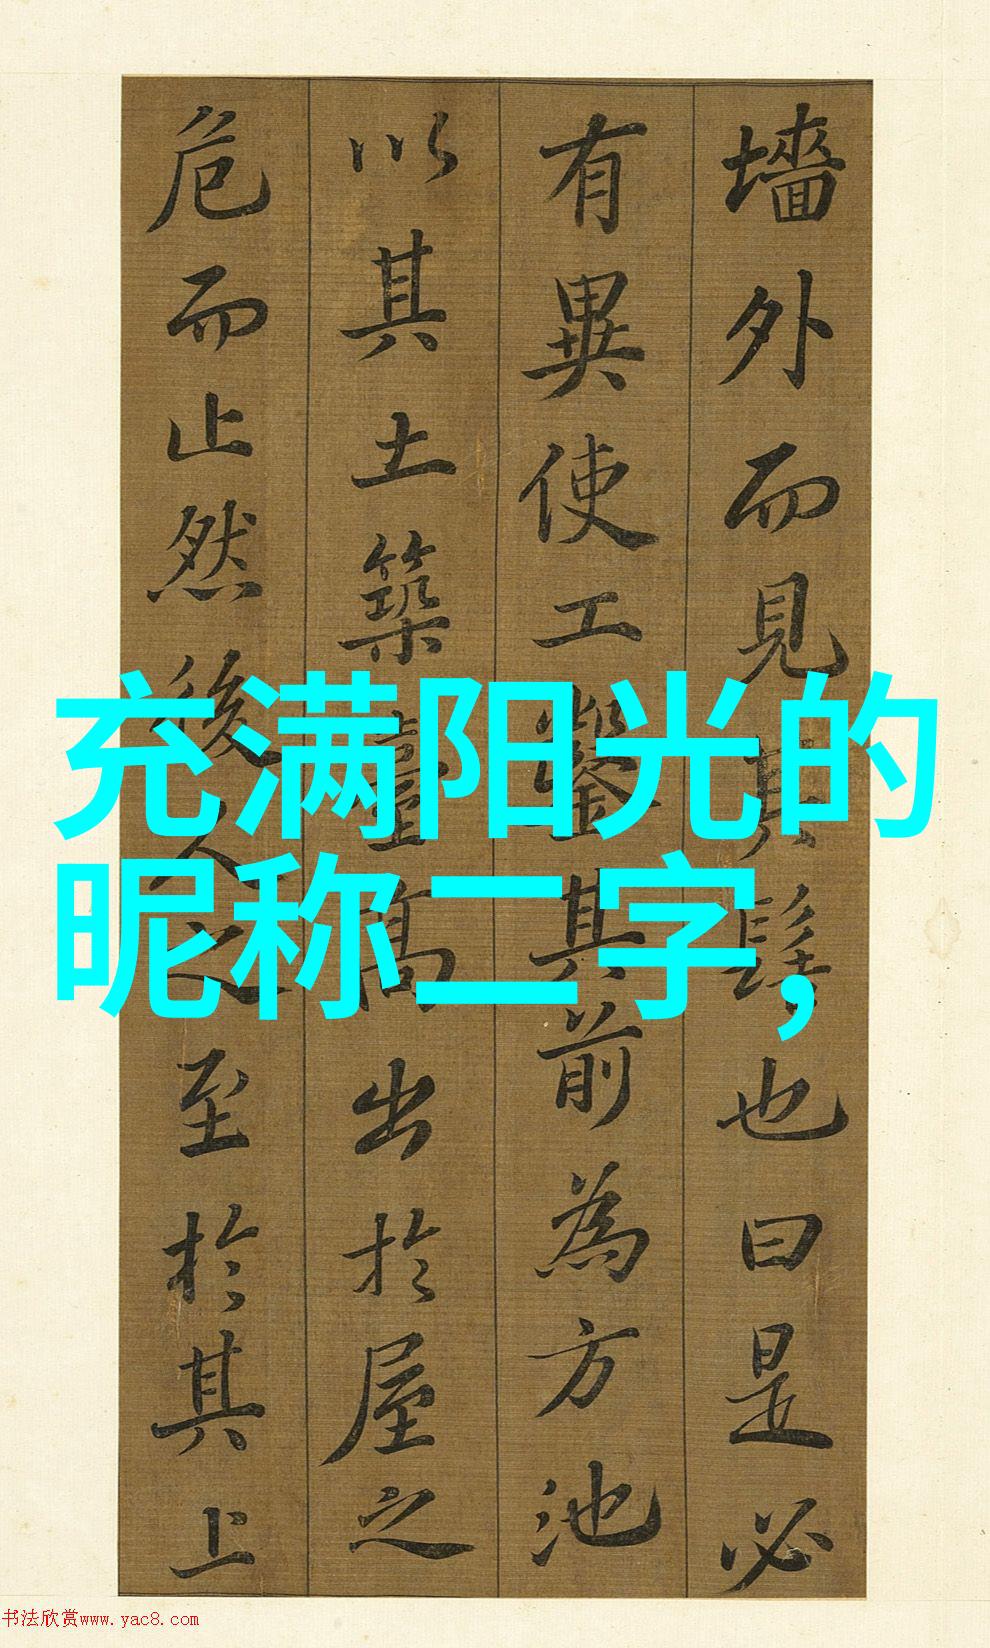 墻外而見其髻也曰是必
有異使工鑿其前為方池
以其土築臺高出於屋之
危而止然後人之至於其上
充满阳光的
昵称二字，
书法欣赏www.yac8.com